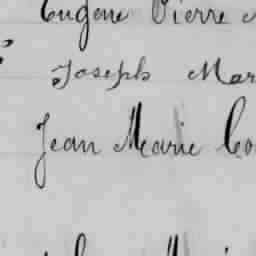 Eugene Pierre
Joseph Mar
Jean Marie Co